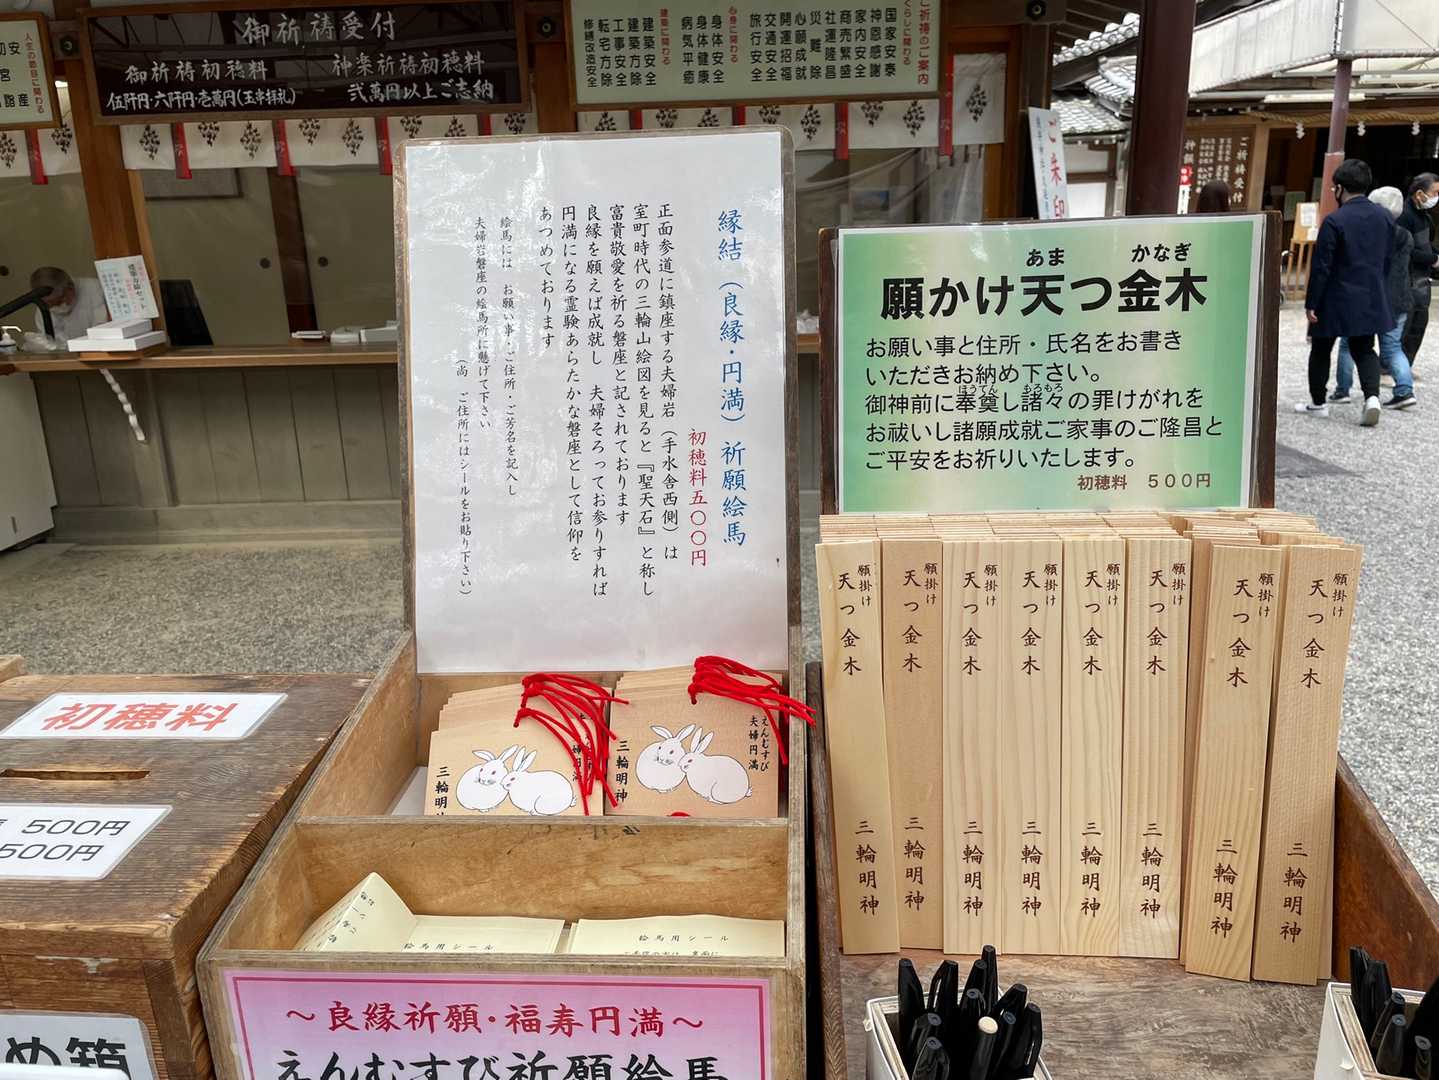 御祈祷受付
神楽祈祷初穂料
弐萬円以上ご志納
御祈祷初穂料
伍阡円・六阡円・壱萬円(玉串拝礼)
人生の節目に関わる
ご祈祷のご案内
くらしに関わる
国家安泰
神恩感謝
家内安全
商売繁盛
社運隆昌
災難除
心願成就
開運招福
交通安全
旅行安全
心身に関わる
身体安全
身体健康
病気平癒
建築に関わる
建築安全
建築方除
工事安全
転宅方除
修繕改造安全
ご朱印
ご祈祷受付
縁結(良縁・円満)祈願絵馬
初穂料五〇〇円
正面参道に鎮座する夫婦岩(手水舎西側)は
室町時代の三輪山絵図を見ると『聖天石』と称し
富貴敬愛を祈る磐座と記されております
良縁を願えば成就し 夫婦そろってお参りすれば
円満になる霊験あらたかな磐座として信仰を
あつめております
絵馬には お願い事・ご住所・ご芳名を記入し
夫婦岩磐座の絵馬所に懸げて下さい
(尚 ご住所にはシールをお貼り下さい)
あま かなぎ
願かけ天つ金木
お願い事と住所・氏名をお書き
いただきお納め下さい。
ほうてん もろもろ
御神前に奉奠し諸々の罪けがれを
お祓いし諸願成就ご家事のご隆昌と
ご平安をお祈りいたします。
初穂料 500円
願掛け
天つ金木
三輪明神
願掛け
天つ金木
三輪明神
願掛け
天つ金木
三輪明神
願掛け
天つ金木
三輪明神
願掛け
天つ金木
三輪明神
願掛け
天つ金木
三輪明神
願掛け
天つ金木
三輪明神
願掛け
天つ金木
三輪明神
えんむすび
夫婦円満
三輪明神
三輪明
初穂料
500円
500円
絵馬用シール
絵馬用シール
～良縁祈願・福寿円満～
えんむすび祈願絵馬
め箱